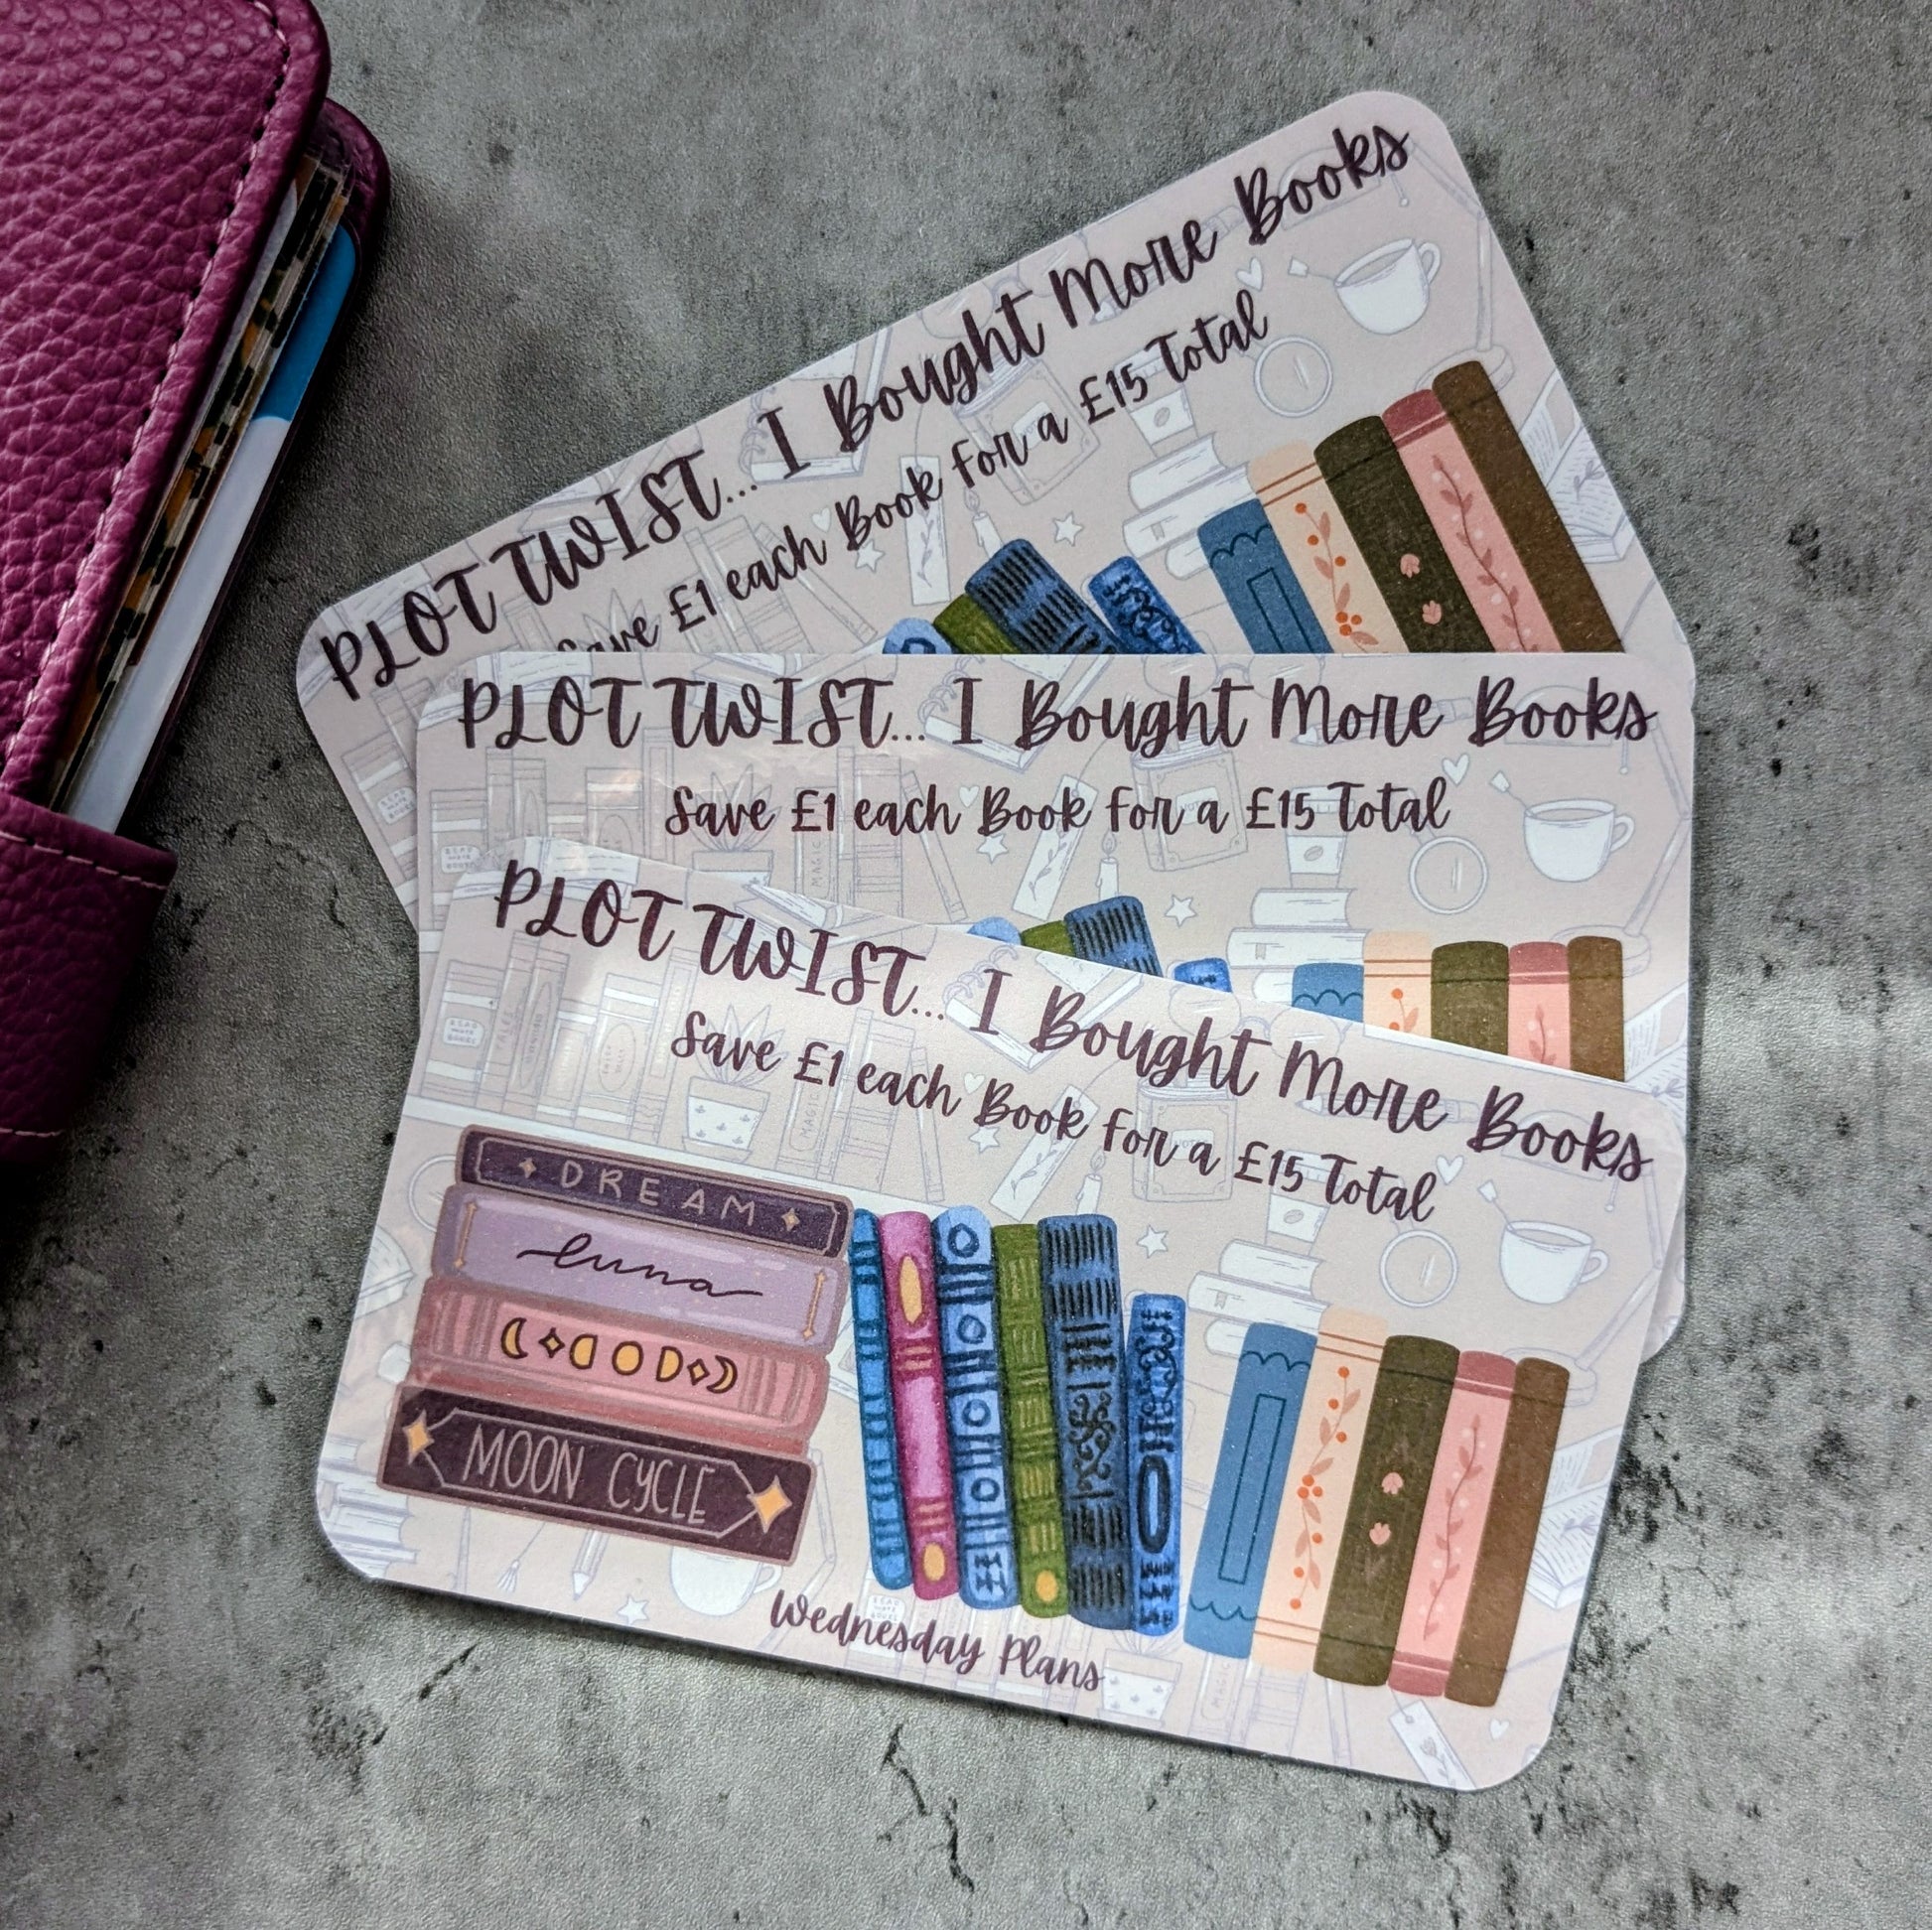 PLOT TWIST... I Bought More Books
Save £1 each Book for a £15 Total
PLOT TWIST... I Bought More Books
Save £1 each Book for a £15 Total
MAGIC
READ
MORE
BOOKS
PLOT TWIST... I Bought More Books
Save £1 each Book for a £15 Total
READ
MORE
BOOKS
TALES
MAGIC
DREAM
luna
MOON CYCLE
Wednesday Plans
MAGIC